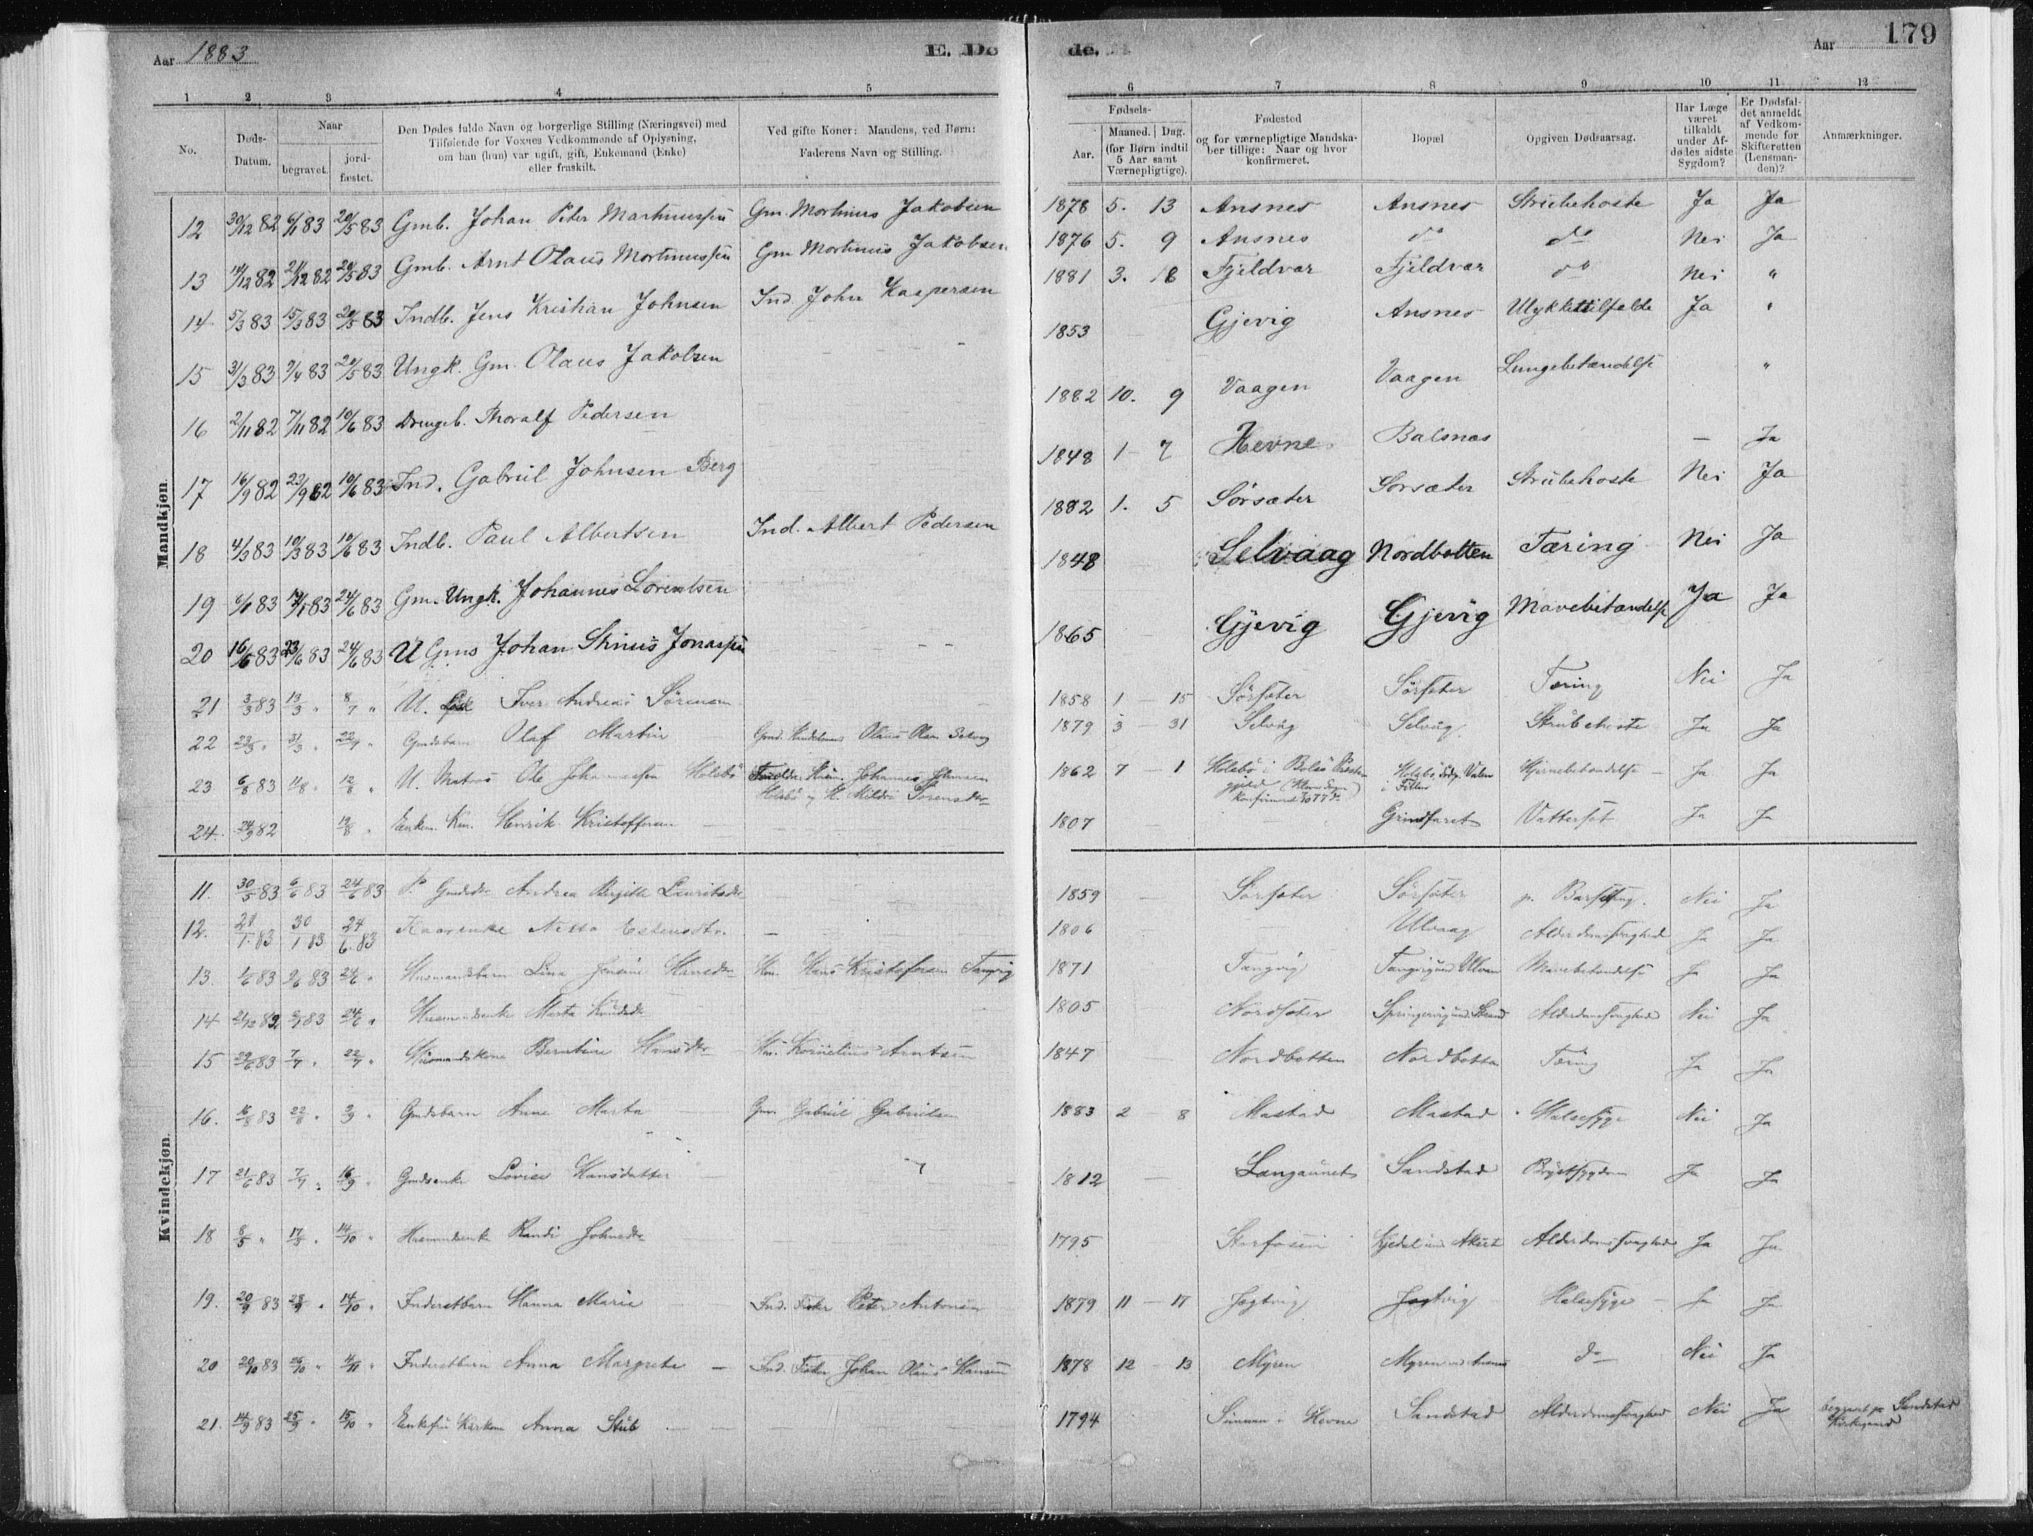 Aar 1883 E. Dø de. Aar 179
1 2 3 4 5 6 7 8 9 10 11 12
No.
Døds-
Datum.
Naar
begravet. jord-
fæstet.
Den Dødes fulde Navn og borgerlige Stilling (Næringsvei) med
Tilføiende for Voxnes Vedkommende af Oplysning,
om han (hun) var ugift, gift, Enkemand (Enke)
eller fraskilt.
Ved gifte Koner: Mandens, ved Børn:
Faderens Navn og Stilling.
Fødsels-
Aar. Maaned. Dag.
(for Børn indtil
5 Aar samt
Værnepligtige).
Fødested
og for værnepligtige Mandska-
ber tillige: Naar og hvor
konfirmeret.
Bopæl
Opgiven Dødsaarsag.
Har Læge
været
tilkaldt
under Af-
dødes sidste
Sygdom?
Er Dødsfal-
det anmeldt
af Vedkom-
mende for
Skifteretten
(Lensman-
den)?
Anmærkninger.
Mandkjøn.
12 30/12 82 6/1 83 20/5 83 Gmb. Johan Peder Martinussen Gm. Mortinus Jakobsen 1878 5. 13 Ansnes Ansnes Strubehoste Ja Ja
13 14/12 82 21/12 82 20/5 83 Gmb. Arnt Olaus Mortinussen Gm Mortinus Jakobsen 1876 5. 9 Ansnes do do Nei Ja
14 5/3 83 15/3 83 20/5 83 Indb. Jens Kristian Johnsen Ind. John Kaspersen 1881 3. 18 Fjeldvær Fjeldvær do Nei "
15 31/3 83 9/4 83 20/5 83 Ungk. Gm. Olaus Jakobsen 1853 Gjevig Ansnes Ulykkestilfælde Ja "
16 2/11 82 7/11 82 10/6 83 Drengeb. Thoralf Pedersen 1882 10. 9 Vaagen Vaagen Lungebetændelse "
17 16/9 82 23/9 82 10/6 83 Ind. Gabriel Johnsen Berg 1848 1 7 Hevne Balsnes — Ja
18 4/3 83 10/3 83 10/6 83 Indb. Paul Albertsen Ind. Albert Pedersen 1882 1. 5 Sørsæter Sørsæter Strubehoste Nei Ja
19 6/1 83 14/1 83 24/6 83 Gm. Ungk. Johannes Lorentsen 1848 Selvaag Nordbotten Tæring Nei Ja
20 16/6 83 23/6 83 24/6 83 U Gms Johan Stinus Jonassen 1865 Gjevig Gjevig Mavebetændelse Ja Ja
21 3/3 83 13/3 " 8/7 " U. Iver Andreas Sørensen 1858 1 15 Sørsæter Sørsæter Tæring Nei Ja
22 23/3 " 31/3 " 22/7 " Gmdsbarn Olaf Martin Olaus Olsen Selvaag 1879 3 31 Selvåg Selvåg Strubehoste Ja Ja
23 6/8 83 11/8 " 12/8 " U. Matros Ole Johannessen Holsbø Johannes Johnsen 1862 7 — 1 Hjernebetændelse — Ja Ja
24. 24/9 82 12/8 " Enkem. Henrik Kristoffersen 1807 Grindfaret Vattersot Ja Ja
Kvindekjøn.
11. 30/5 83 6/6 83 24/6 83 P. Andrea Birgitte Lauritsdtr 1859 Sørsæter Sørsæter p. Barselseng. Nei Ja
12. 21/1 83 30/1 83 24/6 83 Kaarenke Netta Estensdtr. 1806 Ulvaag Alderdomssvaghed Ja Ja
13. 1/6 83 9/6 83 24/6 " Husmandsbarn Lina Jensine Hansdtr Hm. Hans Kristofersen Tangvig 1871 Tangvig Tangvig Mavebetændelse Ja Ja
14 21/12 82 83 24/6 " Husmandsenke Marta Knudsdtr 1805 Nordsæter Alderdomssvaghed Nei Ja
15 29/6 83 7/7 " 22/7 " Husmandskone Berntine Hansdtr Hm. Kornelius Arntsen 1847 Nordbotten Nordbotten Tæring Ja Ja
16. 16/8 83 22/8 " 2/9 " Gmdsbarn Anne Marta Gm. Gabriel Gabrielsen 1883 2 8 Mastad Mastad Halssyge Nei Ja
17 21/6 83 7/7 " 16/9 " Gmdsenke Lovise Hansdatter 1812 Langaunet Sandstad Brystsygdom Ja Ja
18 8/5 " 17/5 " 14/10 " Husmandsenke Randi Johnsdtr 1795 Storfosen Alderdomssvaghed Ja Ja
19. 20/9 83 28/9 " 14/10 " Inderstbarn Hanna Marie Ind. Fisker Peter Antonsen 1879 11 — 17 Jøgtvig Jøgtvig Halssyge — Ja Ja
20 20/10 83 26/10 " 4/11 " Inderstbarn Anna Margrete — Ind. Fisker Johan Olaus Hansen 1878 12 — 13 Myren Myren ved Ansnes do Nei Ja
21. 14/9 83 25/9 " 15/10 " Anna Stub 1794 i Hevne Sandstad Alderdomssvaghed Nei Ja begravet på Sandstad
Kirkegaard